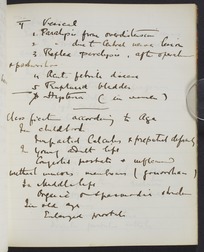 II Vesical
1. Paralysis from overdistension
2. " due to Cerebral nerve lesion
3. Reflex paralysis, after operation
& parturition
4 Acute febrile disease
5 Ruptured bladder
6 Hysteria (in women)
Classification according to Age
In childhood
Impacted Calculus &
In Young Adult life
Congested prostate & inflamed
urethral mucous membrane (gonorrhoea)
In Middle life
Organic or spasmodic stricture
In old age
Enlarged prostate